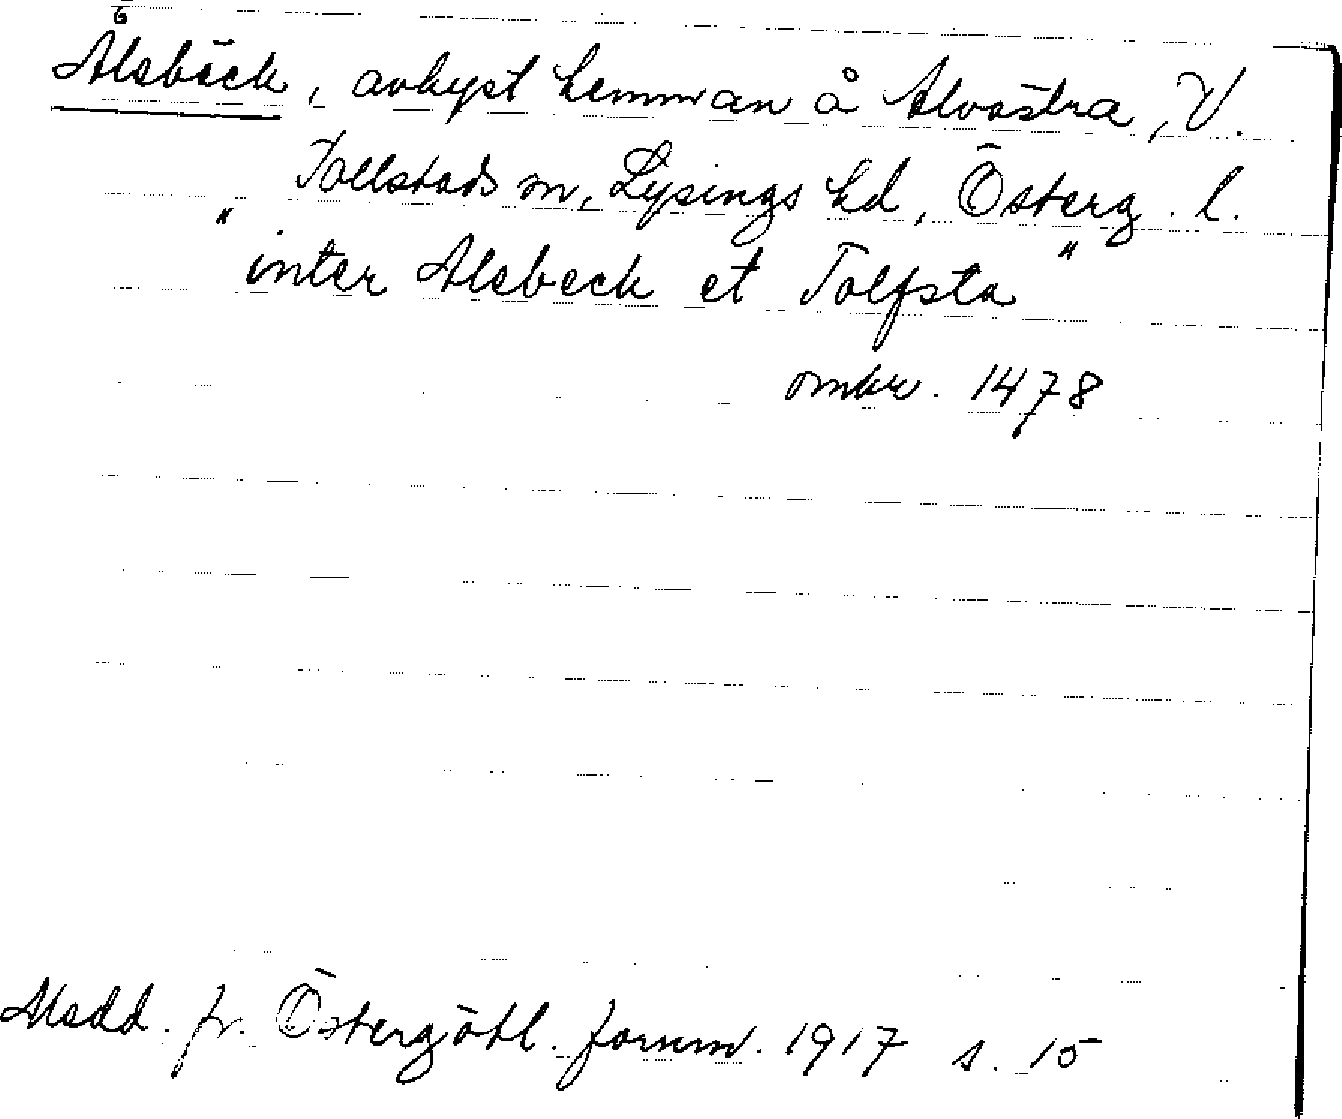 Ålsbäck, avhyst hemman å Alvastra, V.
Tollstads sn, Lysings hd, Österg. l.
"inter Alsbeck et Tolfsta"
omkr. 1478
Medd. fr. Östergötl. fornm. 1917 s. 15